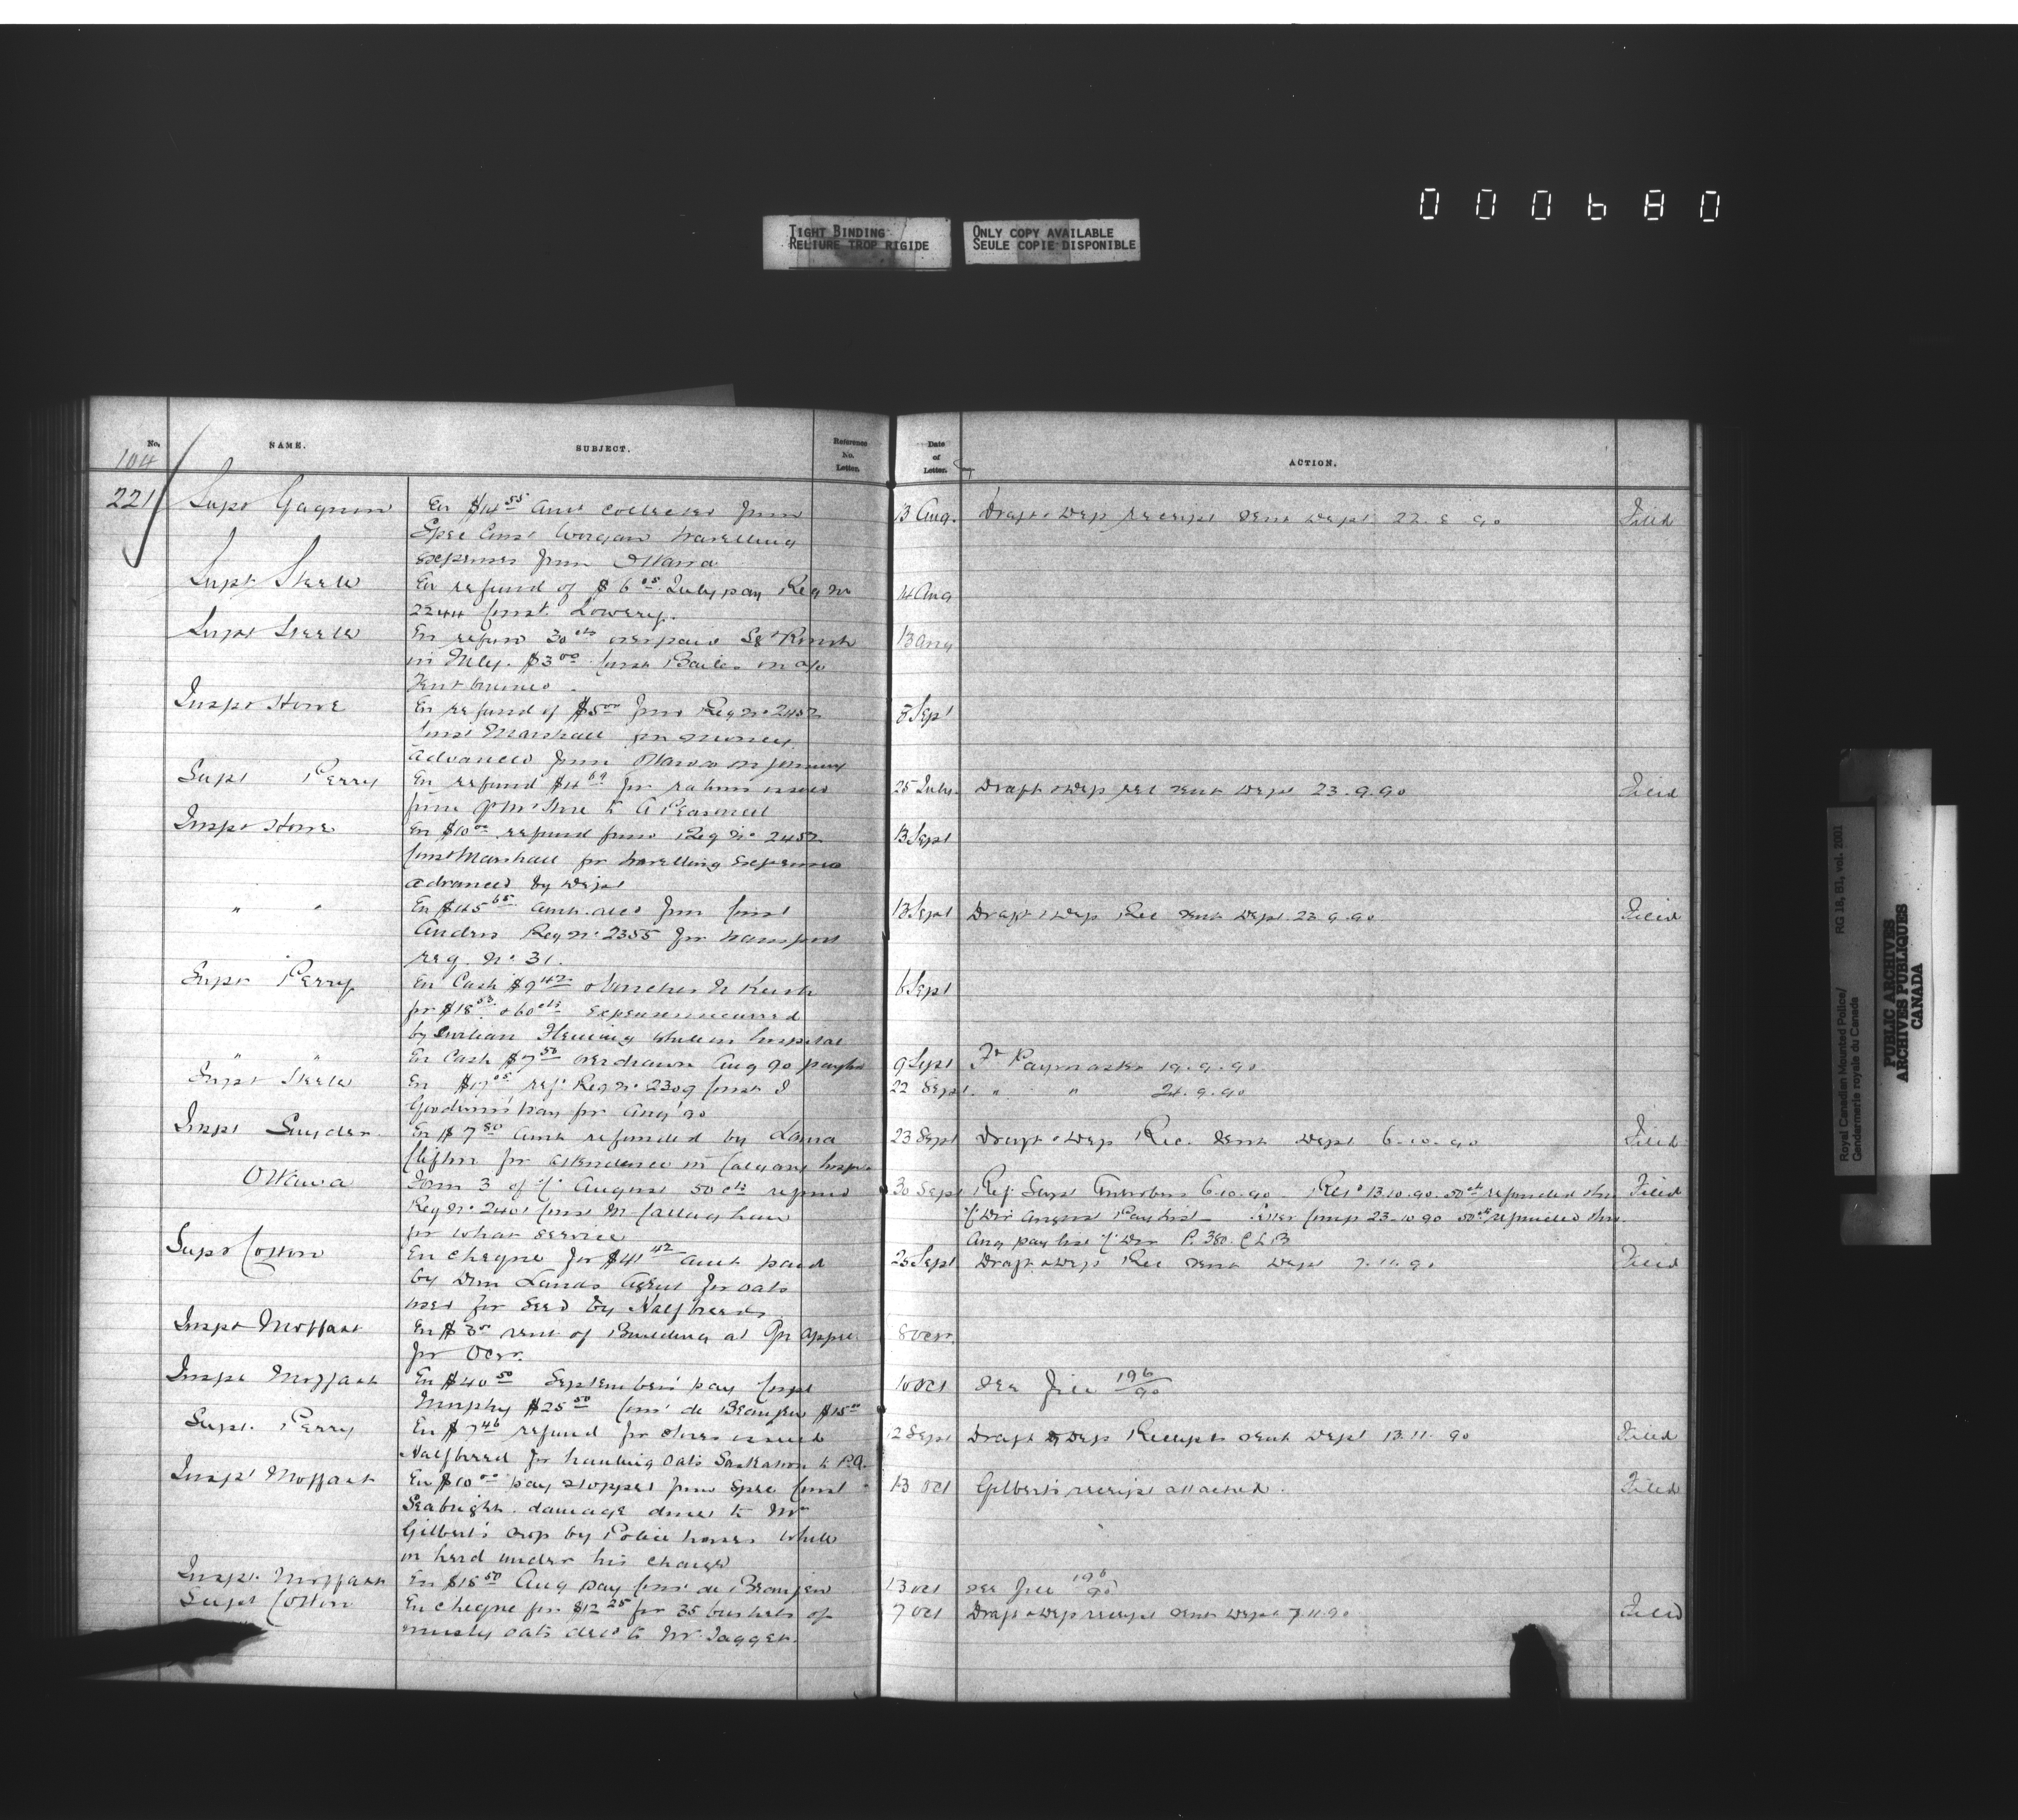 000680
TIGHT BINDING
RELIURE TROP RIGIDE
ONLY COPY AVAILABLE
SEULE COPIE DISPONIBLE
No. NAME. SUBJECT. Reference No. Letter. Date of Letter. ACTION.
104
221 Supt Gagnon En $14.55 Amt collected from 13 Aug. Draft & Dep receipt sent Dept 22.8.90 Filed
Spec Const Worgan travelling
expenses from Ottawa
Supt Steele En refund of $6.05 July pay Reg No 14 Aug
2244 Const. Lowery.
Supt Steele En refund 30 cts overpaid Sgt 13 Aug
in July. $3.00 Const on a/c
Inspr Howe En refund of $5.00 from Reg No 2452 8 Sept
Const Marshall for money
advanced from Ottawa on journey
Supt Perry En refund $4.69 for rations issued 25 July. Draft & Dep rec sent Dept 23.9.90 Filed
from QM Store to
Inspr Howe En $10.00 refund from Reg No 2452 13 Sept
Const Marshall for travelling expenses
advanced by Dept
" " En $45.65 amt from Const 13 Sept Draft & Dep Rec sent Dept. 23.9.90 Filed
Anders Reg No 2355 for transport
req. No 31.
Supt Perry En Cash $9.42 & vouchers 6 Sept
for $18.53 & 60 cts expenses incurred
by Fleming while in hospital
" " En Cash $7.50 overdrawn Aug 90 paylist 9 Sept Fr Paymaster 19.9.90
Supt Steele En ref. Reg No 2309 Const J 22 Sept. " " 24.9.90
Goodwin's pay for Aug '90
Inspr Snyder En $7.80 amt refunded by 23 Sept Draft & Dep Rec. sent Dept 6.10.90 Filed
Clifton for attendance in Calgary hosp.
Ottawa Form 3 of "C" August 50 cts refund 30 Sept Ref. Supt Antrobus 6.10.90 Ret'd 13.10.90. 50 cts refunded thro Filed
Reg No 2401 Const M Callaghan "C" Div August Pay list Letter Compt 23-10-90 50 cts refunded thro
for what service Aug pay list "C" Div P. 380. C L B
Supt Cotton En cheque for $41.42 amt paid 25 Sept Draft & Dept Rec sent Dept 7.11.90 Filed
by Dom Lands Agent for oats
used for seed by Halfbreeds
Inspr Moffatt En rent of Building at Qu'Appelle 8 Oct.
for Oct.
Inspr Moffatt En $40.50 September's pay Const 10 Oct see File 196/90
Murphy $25.50 Const de Beaujeu $15.00
Supt. Perry En $7.46 refund for stores issued 2 Sept Draft & Dep Receipts sent Dept 13.11.90 Filed
Halfbreed for hauling oats Saskatoon to P.A.
Inspr Moffatt En $10.00 pay stopped from Spec Const 13 Oct Gilbert's receipt attached. Filed
Seabright damage done to Mr
Gilbert's crop by Police horses while
in herd under his charge
Inspr. Moffatt En $15.50 Aug pay Const de Beaujeu 13 Oct see File 196/90
Supt Cotton En cheque for $12.25 for 35 bushels of 7 Oct Draft & Dep receipt sent Dept 7.11.90 Filed
musty oats to Mr. Jagger.
Royal Canadian Mounted Police/ RG 18, B1, vol. 2001
Gendarmerie royale du Canada
PUBLIC ARCHIVES
ARCHIVES PUBLIQUES
CANADA